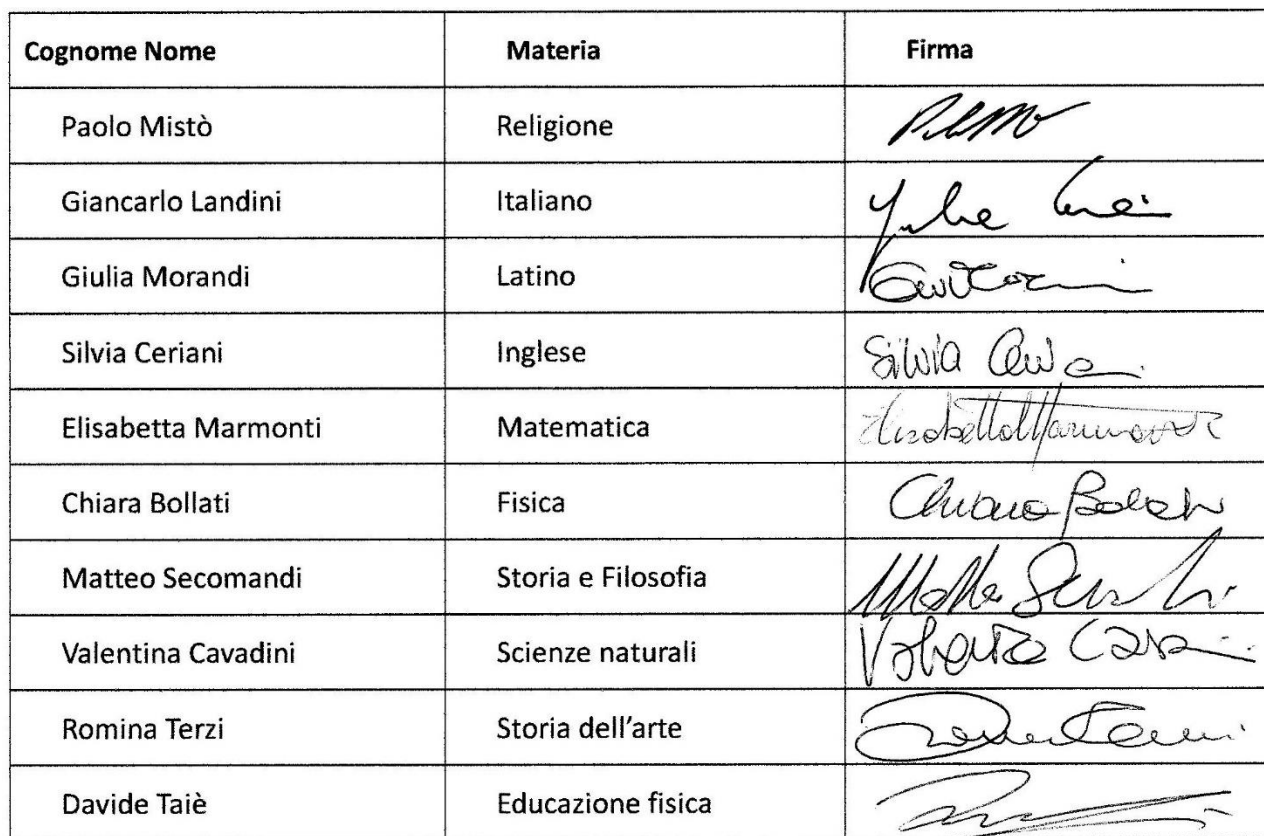 Cognome Nome Materia Firma
Paolo Mistò Religione
Giancarlo Landini Italiano
Giulia Morandi Latino
Silvia Ceriani Inglese Silvia
Elisabetta Marmonti Matematica Elisabetta Marmonti
Chiara Bollati Fisica Chiara Bollati
Matteo Secomandi Storia e Filosofia
Valentina Cavadini Scienze naturali
Romina Terzi Storia dell’arte
Davide Taiè Educazione fisica